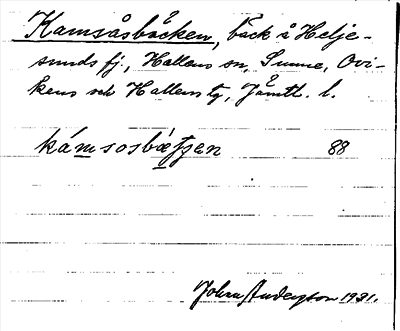 Kamsåsbäcken, bäck å Helje-
sunds fj., Hallens sn, Sunne, Ovi-
kens och Hallens tg, Jämtl. l.
kámsosbæ̀tʃen 88
Johan Anderzson 1931.